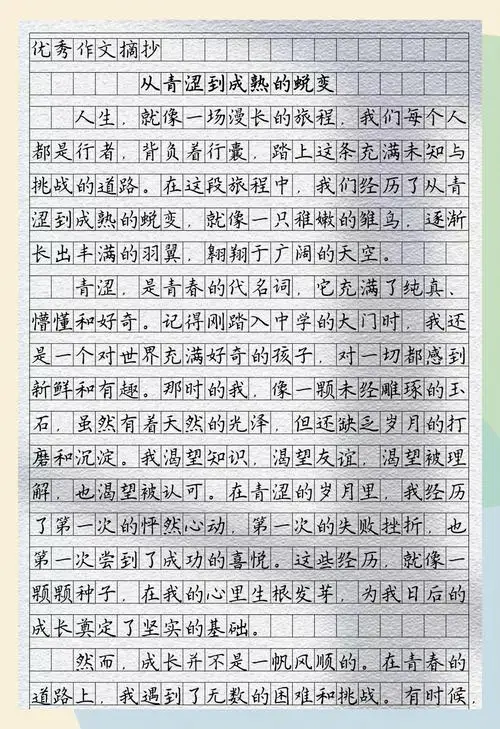 优秀作文摘抄
从青涩到成熟的蜕变
人生，就像一场漫长的旅程，我们每个人
都是行者，背负着行囊，踏上这条充满未知与
挑战的道路。在这段旅程中，我们经历了从青
涩到成熟的蜕变，就像一只稚嫩的雏鸟，逐渐
长出丰满的羽翼，翱翔于广阔的天空。
青涩，是青春的代名词，它充满了纯真、
懵懂和好奇。记得刚踏入中学的大门时，我还
是一个对世界充满好奇的孩子，对一切都感到
新鲜和有趣。那时的我，像一颗未经雕琢的玉
石，虽然有着天然的光泽，但还缺乏岁月的打
磨和沉淀。我渴望知识，渴望友谊，渴望被理
解，也渴望被认可。在青涩的岁月里，我经历
了第一次的怦然心动，第一次的失败挫折，也
第一次尝到了成功的喜悦。这些经历，就像一
颗颗种子，在我的心里生根发芽，为我日后的
成长奠定了坚实的基础。
然而，成长并不是一帆风顺的。在青春的
道路上，我遇到了无数的困难和挑战。有时候，